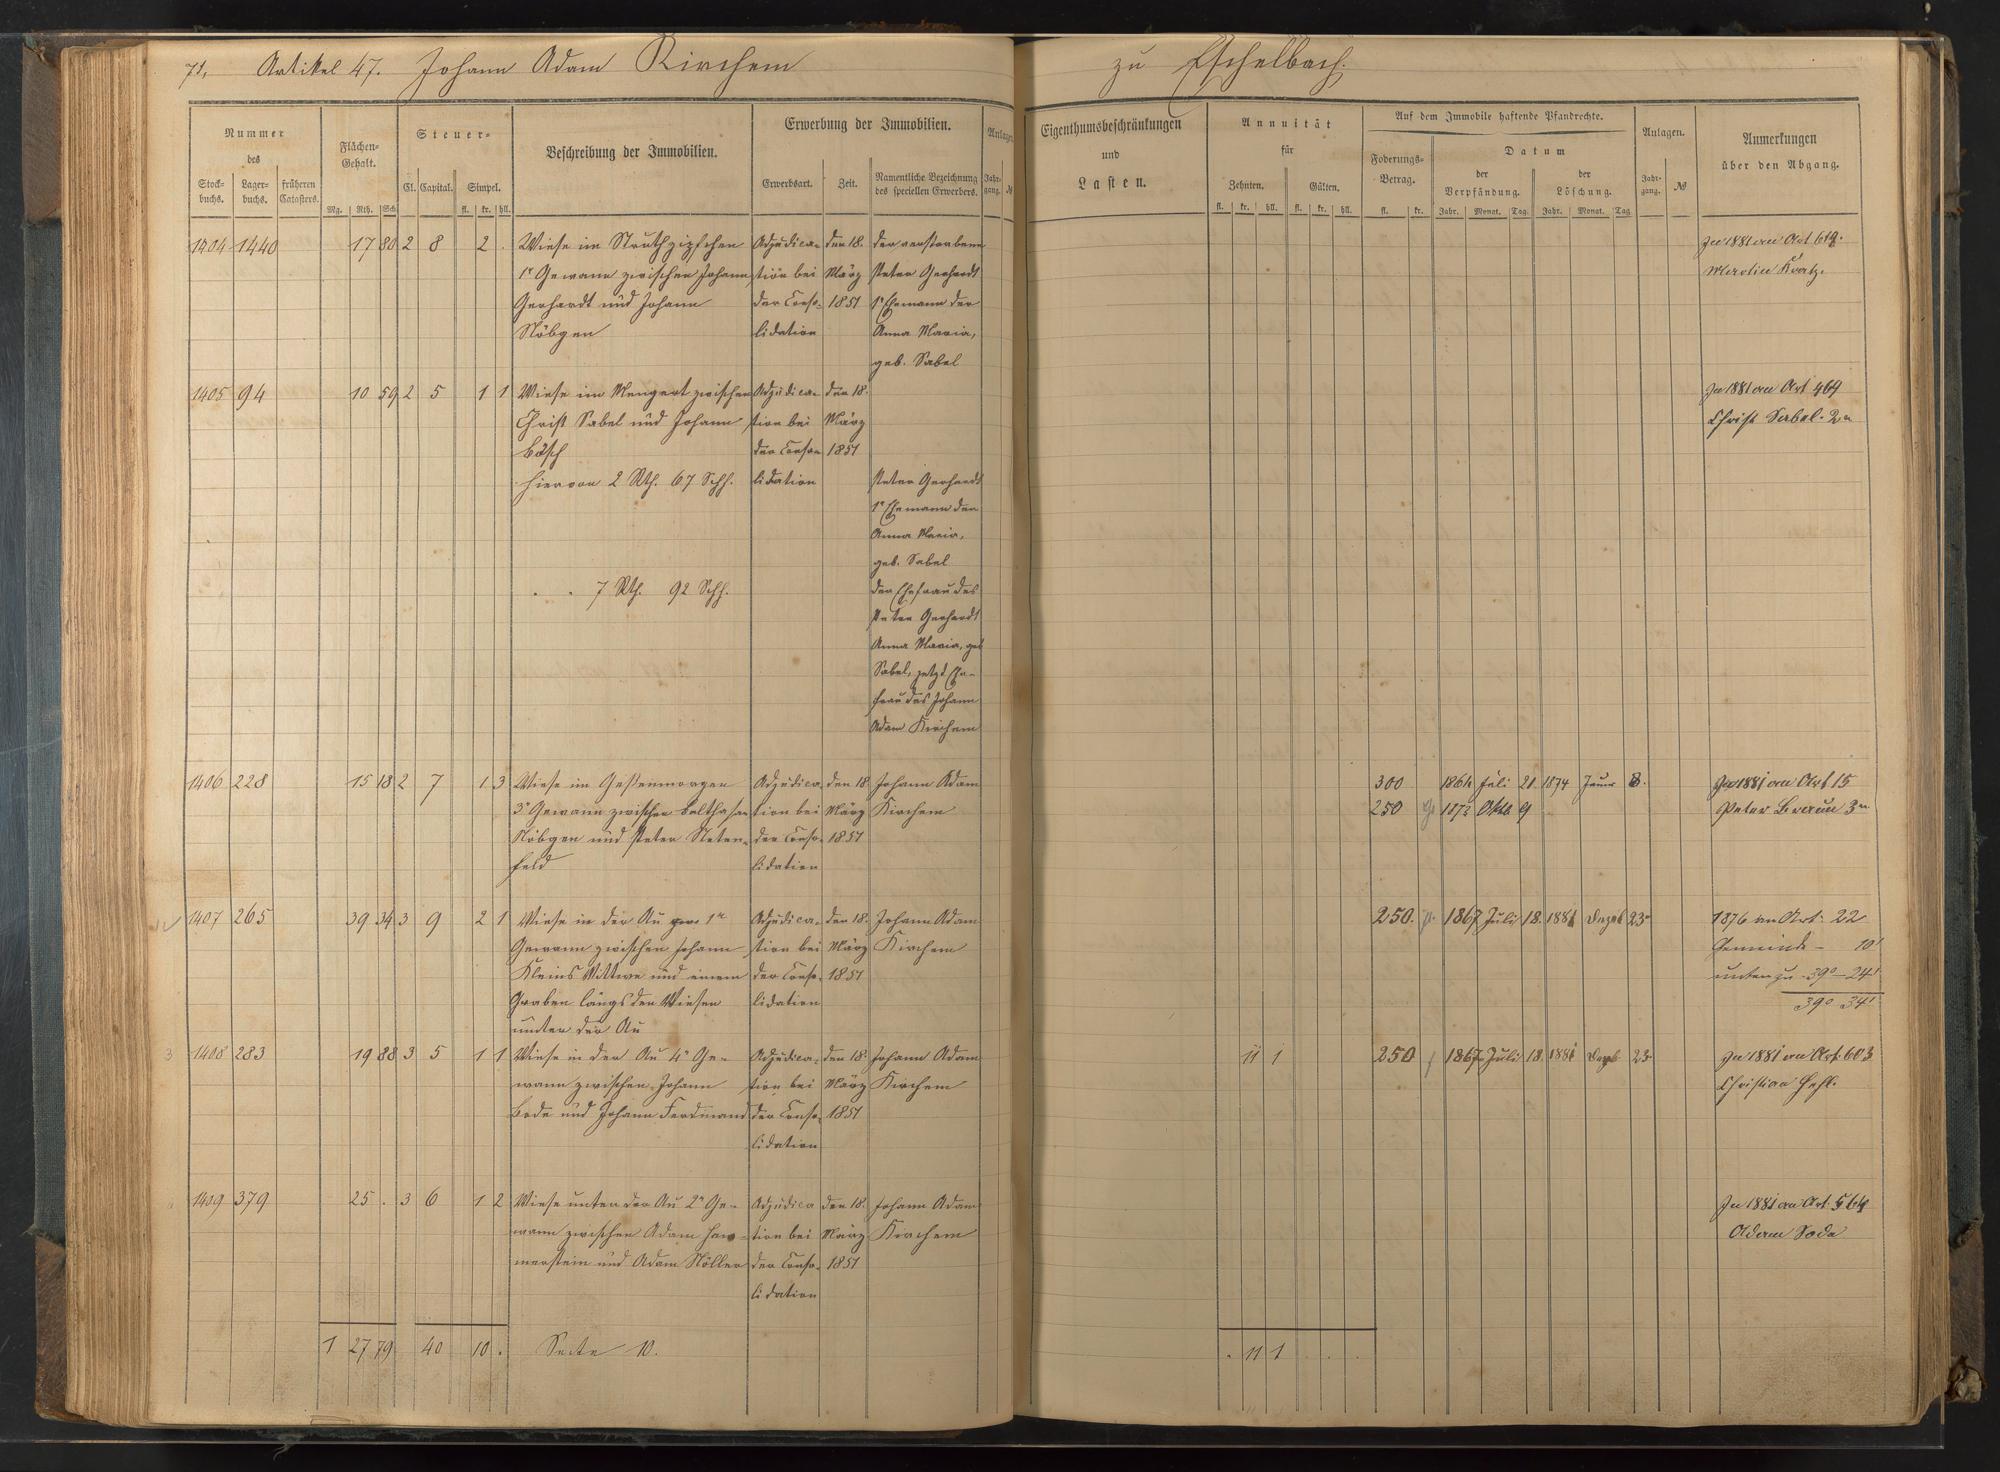 71. Artikel 47. Johann Adam Kirchem zu Eschelbach.
Nummer des
Stock-buchs. Lager-buchs. früheren Catasters.
Flächen-Gehalt.
Mg. Rth. Sch.
Steuer-
Cl. Capital. Simpel.
fl. kr. hll.
Beschreibung der Immobilien.
Erwerbung der Immobilien.
Erwerbsart. Zeit. Namentliche Bezeichnung des speciellen Erwerbers.
Anlagen.
Jahr-gang. №
Eigenthumsbeschränkungen
und
Lasten.
Annuität
für
Zehnten. Gülten.
fl. kr. hll. fl. kr. hll.
Auf dem Immobile haftende Pfandrechte.
Foderungs-Betrag.
fl. kr.
Datum
der Verpfändung. der Löschung.
Jahr. Monat. Tag. Jahr. Monat. Tag
Anlagen.
Jahr-gang. №
Anmerkungen
über den Abgang.
1404 1440 17 80 2 8 2 . Wiese im Struthzipfchen Adjudica- den 18. der verstorbene
1r Gewann zwischen Johann tion bei März Peter Gerhardt
Gerhardt und Johann der Conso- 1851 1r Ehemann der
Nöbgen lidation Anna Maria,
geb. Sabel
In 1881 an Art 619.
Martin Kratz.
1405 94 10 59 2 5 1 1 Wiese im Mengert zwischen Adjudica- den 18.
Christ Sabel und Johann tion bei März
Bösch der Conso- 1851
hiervon 2 Rth. 67 Sch. lidation Peter Gerhardt
1r Ehemann der
Anna Maria,
geb. Sabel
" " 7 Rth. 92 Sch. der Ehefrau des
Peter Gerhardt
Anna Maria, geb
Sabel, jetzt Ehe-
frau des Johann
Adam Kirchem
In 1881 an Art 469
Christ Sabel. 2r
1406 228 15 18 2 7 1 3 Wiese im Geßenmorgen Adjudica den 18. Johann Adam
3r Gewann zwischen Balthasar tion bei März Kirchem
Nöbgen und Peter Neten- der Conso- 1851
feld lidation
300 1864 Juli 21 1874 Janr 8.
250 1872 Oktb 9
In 1881 an Art 15
Peter Braun 3r
1407 265 39 34 3 9 2 1 Wiese in der Au 1te Adjudica- den 18. Johann Adam
Gewann zwischen Johann tion bei März Kirchem
Kleins Wittwe und einem der Conso- 1851
Graben längs den Wiesen lidation
unter der Au
250. 1867 Juli 18. 1881 Dezb 23.
1876 an Art. 22
Gemeinde - 10'
unten zu 39° - 24'
39° 34'
1408 283 19 88 3 5 1 1 Wiese in der Au 4r Ge- Adjudica- den 18. Johann Adam
wann zwischen Johann tion bei März Kirchem
Bode und Johann Ferdinand der Conso- 1851
lidation
11 1 250 1867 Juli 18. 1881 Dezb 23.
In 1881 an Art. 603
Christian Hehl.
1409 379 25 . 3 6 1 2 Wiese unter der Au 2r Ge- Adjudica den 18. Johann Adam
wann zwischen Adam Ham- tion bei März Kirchem
merstein und Adam Nöller der Conso- 1851
lidation
In 1881 an Art. 564
Adam Bode
1 27 79 40 10 . Seite 10.
. 11 1 . .